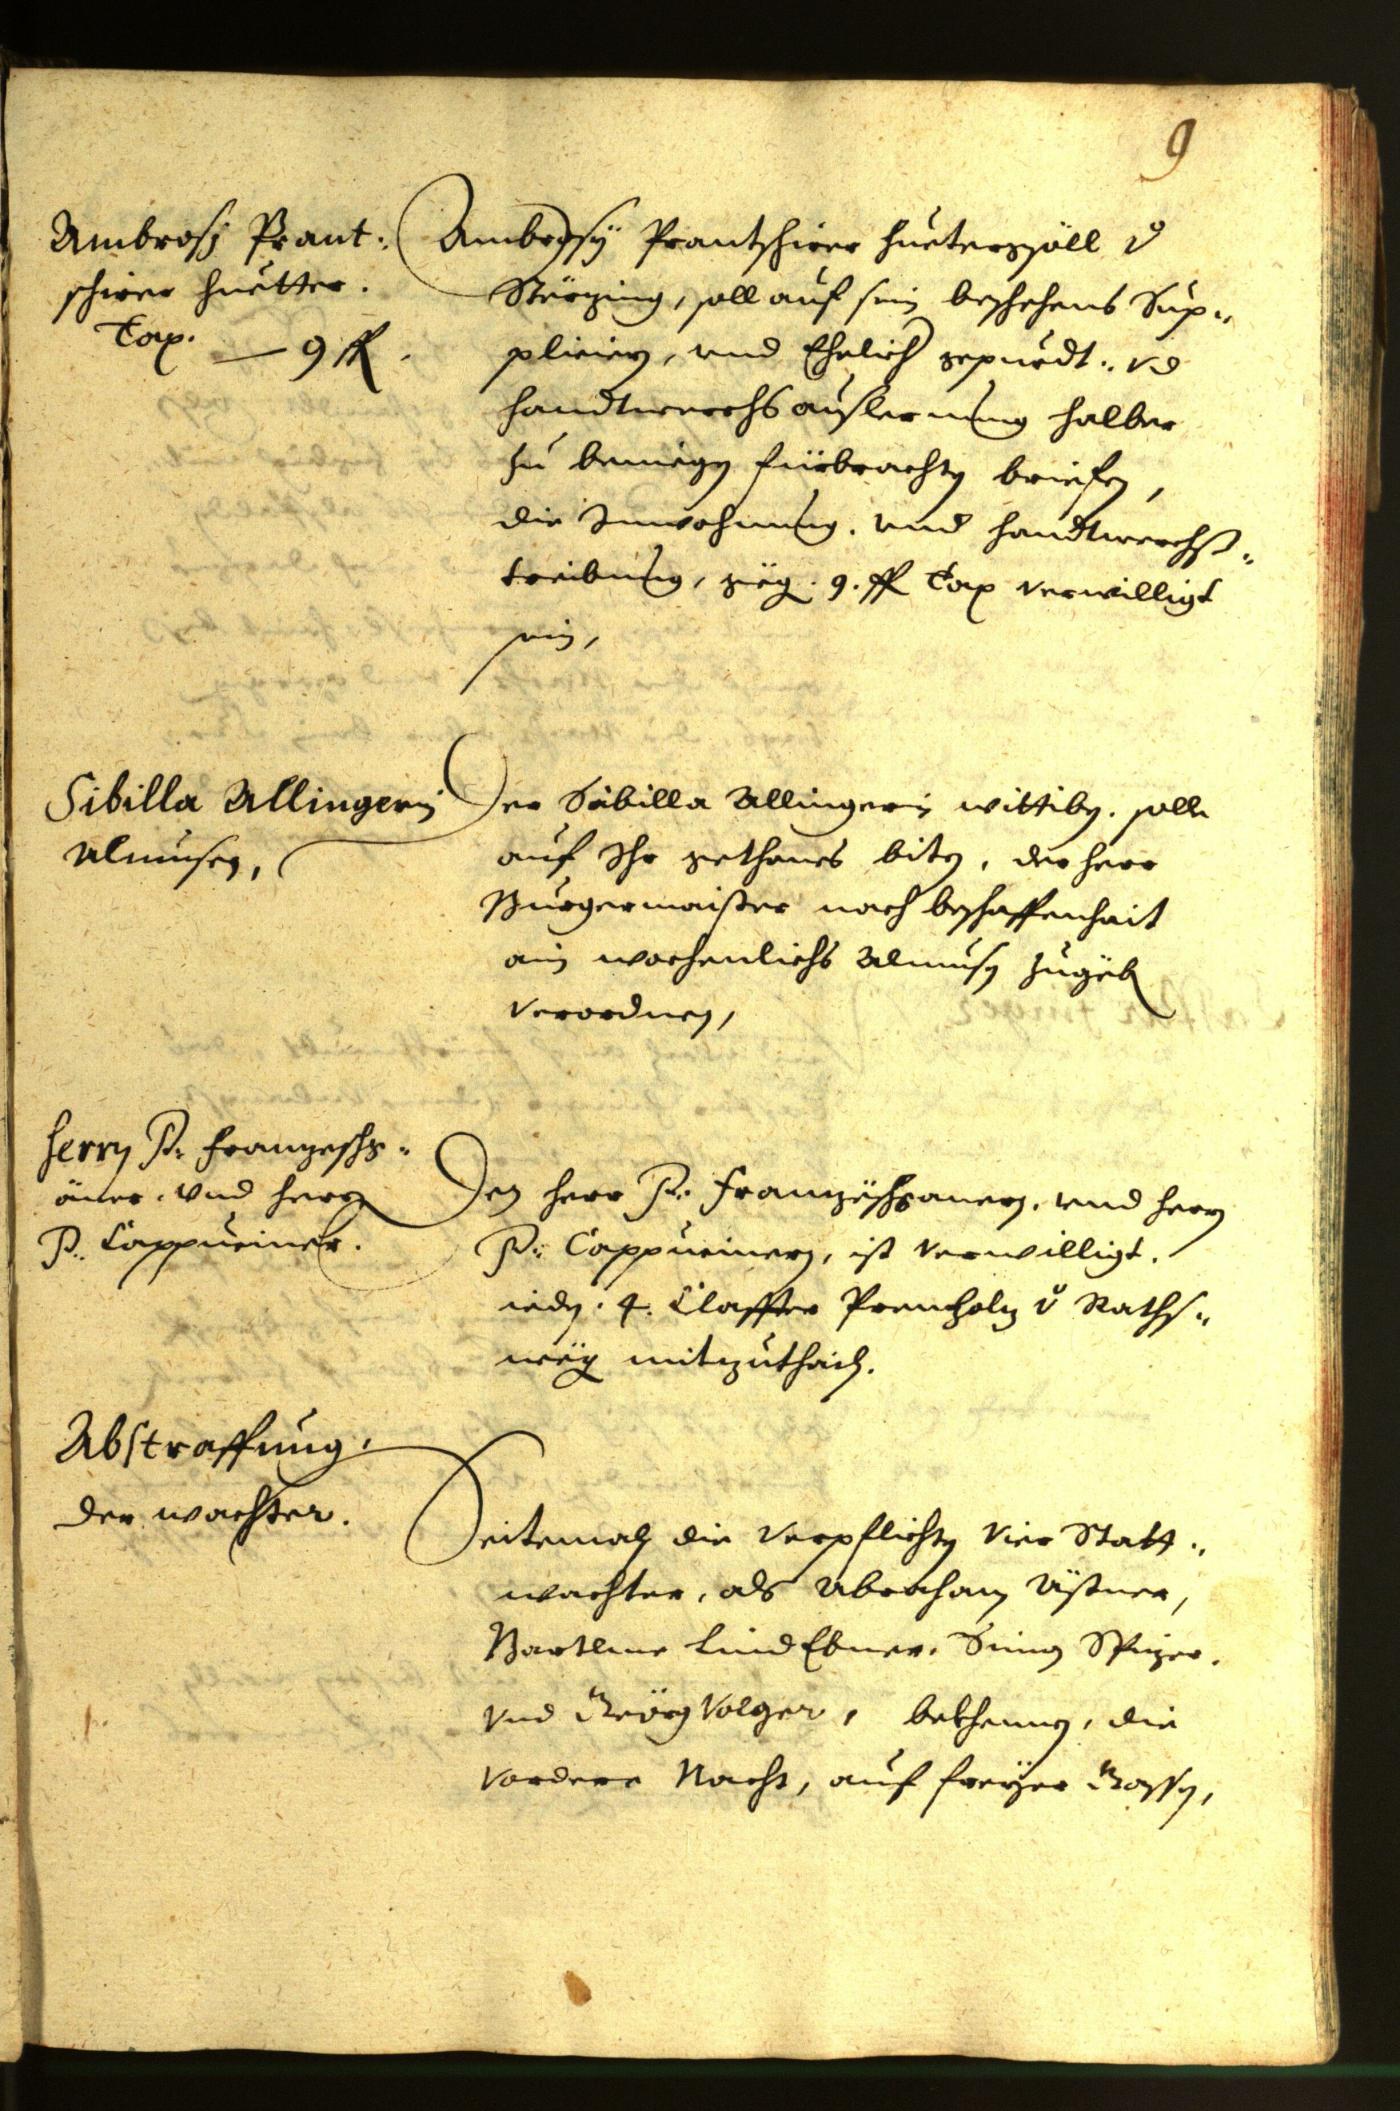 9
Ambrosj Prant:
schirer Huetter.
Tax. — 9 fl.
Ambrosy Prantschirer Huetergsöll v
Störzing, soll auf sein beschehens Sup¬
pliciern, und Ehelich gepurdt: vnd
Handtwerchs auslernung halber
zu beniegen fürbrachten briefen,
die Innwohnung. und Handtwerchs¬
treibung, gegen. 9. fl Tax verwilligt
sein,
Sibilla Allingerin
Almusen,
Der Sibilla Allingerin wittiben. solle
auf Ihr gethanes biten, der Herr
Burgermaister nach beschaffenhait
ain wochenlichs Almusen zugeben
verordnen,
Herrn P: Franzeschg¬
aner. Vnd Herrn
P: Cappuciner.
Den Herr P: Franzischganern, und Herrn
P: Cappucinern, ist verwilligt.
ieden. 4. Claffter Prenholz v Raths¬
weg mitzuthailn.
Abstraffung.
der wachter.
Seitemaln die verpflichten Vier Statt¬
wachter, als Abraham Äßner,
Bartlme LindEbner. Simon Spizer.
Vnd Geörg Volger, bekhennen, die
vordere Nacht, auf freyer Gassen,